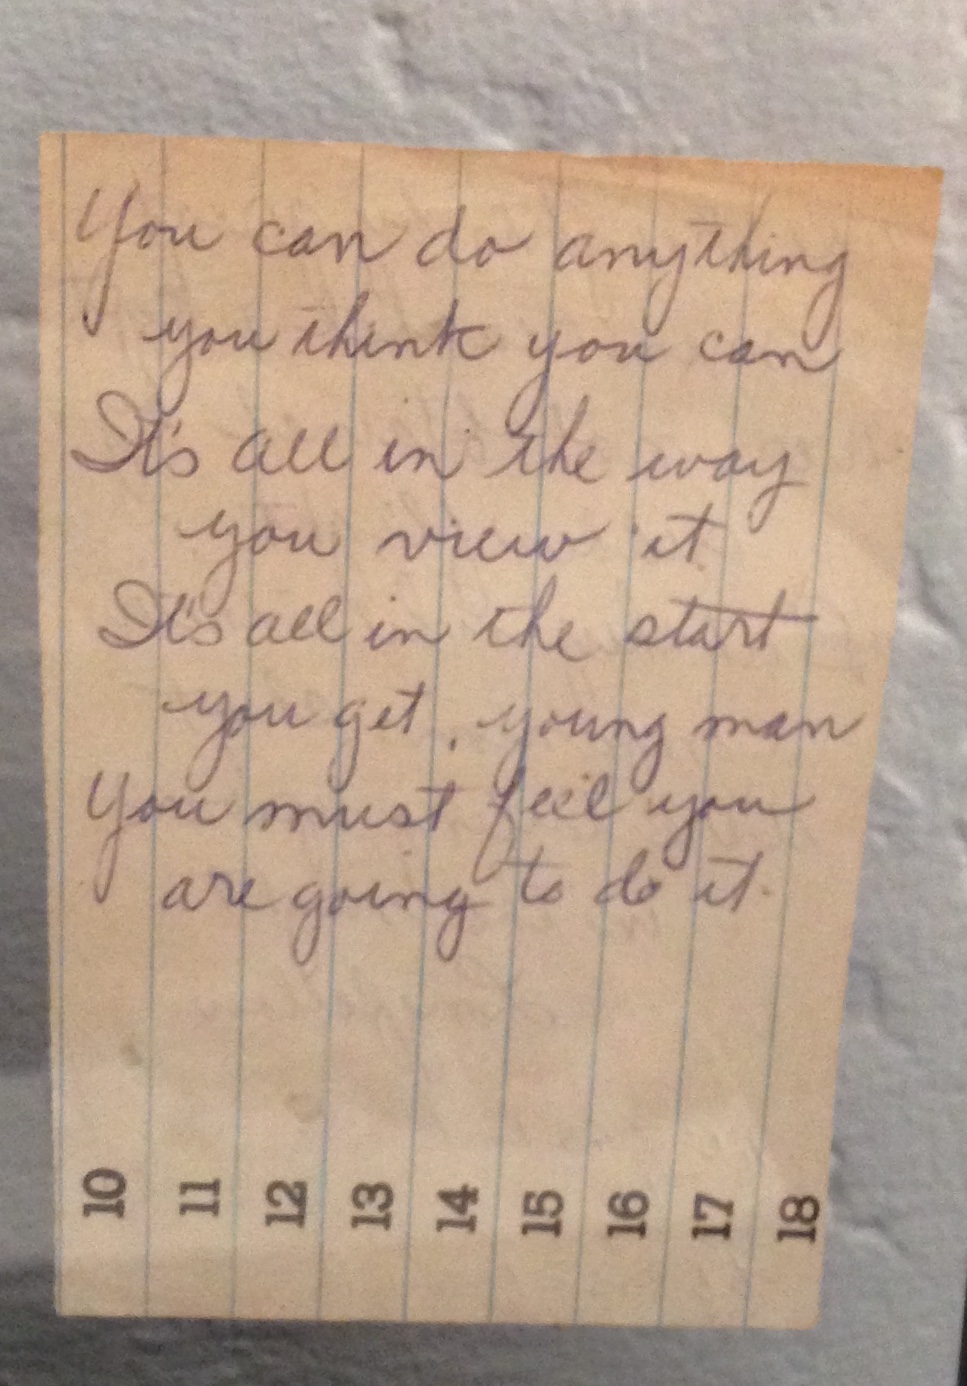 You can do anything
you think you can
It's all in the way
you view it.
It's all in the start
you get, young man
You must feel you
are going to do it.
10 11 12 13 14 15 16 17 18